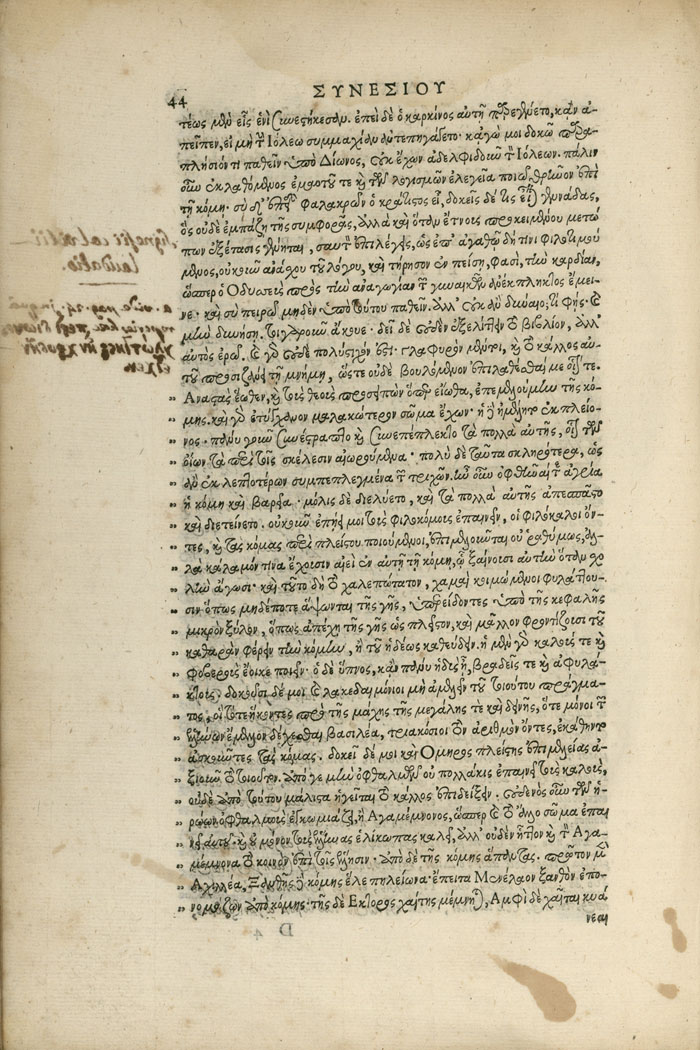 ΣΥΝΕΣΙΟΥ
44
τέως μὲν εἷς ἑνὶ συνεστήκεσαν. ἐπεὶ δὲ ὁ καρκίνος αὐτῇ κἂν ἀ-
πεῖπεν, εἰ μὴ τὴν Ἰόλεω συμμαχίαν ἀντεπηγάγετο. κἀγώ μοι δοκῶ παρα-
πλήσιόν τι παθεῖν ὑπὸ Δίωνος, οὐκ ἔχων ἀδελφιδοῦν τὸν Ἰόλεων. πάλιν
οὖν ἐκλαθόμενος ἐμαυτοῦ τε καὶ τῶν λογισμῶν ἐλεγεῖα ποιῶ θρηνῶν ἐπὶ
τῇ κόμῃ. σὺ δ' ἐπεὶ φαλακρῶν ὁ κράτιστος εἶ, δοκεῖς δέ τις εἶναι γεννάδας,
ὃς οὐδὲ ἐμπάζῃ τῆς συμφορᾶς, ἀλλὰ καὶ ὅταν ἔτνους προκειμένου μετώ
πων ἐξέτασις γένηται, σαυτὸν ἐπιλέγεις, ὡς ἐπ' ἀγαθῷ δή τινι φιλοτιμού
μενος, οὐκοῦν ἀνάσχου τοῦ λόγου, καὶ τήρησον ἐν πείσῃ, φασὶ, τὴν καρδίαν,
ὥσπερ ὁ Ὀδυσσεὺς πρὸς τὴν ἀναγωγίαν τῶν γυναικῶν ἀνέκπληκτος ἔμει-
νε. καὶ σὺ πειρῶ μηδὲν ὑπὸ τούτου παθεῖν. ἀλλ' οὐκ ἂν δύναιο; τί φής; καὶ
μὴν δυνήσῃ. τοιγαροῦν ἄκουε. δεῖ δὲ οὐδὲν ἐξελίττειν τὸ βιβλίον, ἀλλ'
αὐτὸς ἐρῶ. καὶ γὰρ οὐδὲ πολύστιχόν ἐστι. γλαφυρὸν μέντοι, καὶ τὸ κάλλος αὐ-
τοῦ προσιζάνει τῇ μνήμῃ, ὥστε οὐδὲ βουλόμενον ἐπιλαθέσθαι με οἷόν τε.
„ Ἀναστὰς ἕωθεν, καὶ τοὺς θεοὺς προσειπὼν ὅπερ εἴωθα, ἐπεμελούμην τῆς κό-
„ μης. καὶ γὰρ ἐτύγχανον μαλακώτερον σῶμα ἔχων. ἡ δὲ ἠμέλητο ἐκ πλείο-
„ νος. πάνυ γοῦν συνέστραπτο καὶ συνεπέπλεκτο τὰ πολλὰ αὐτῆς, οἷον τῶν
„ ὀίων τὰ περὶ τοῖς σκέλεσιν αἰωρούμενα. πολὺ δὲ ταῦτα σκληρότερα, ὡς
„ ἂν ἐκ λεπτοτέρων συμπεπλεγμένα τῶν τριχῶν. ἦν οὖν ὀφθῆναι τε ἀγρία
„ ἡ κόμη καὶ βαρεῖα. μόλις δὲ διελύετο, καὶ τὰ πολλὰ αὐτῆς ἀπεσπᾶτο
„ καὶ διετείνετο. οὐκοῦν ἐπῄει μοι τοὺς φιλοκόμους ἐπαινεῖν, οἳ φιλόκαλοι ὄν-
„ τες, καὶ τὰς κόμας περὶ πλείστου ποιούμενοι, ἐπιμελοῦνται οὐ ῥαθύμως, ἀλ-
„ λὰ καλαμόν τινα ἔχουσιν ἀεὶ ἐν αὐτῇ τῇ κόμῃ, ᾧ ξαίνουσι αὐτὴν ὅταν σχο
„ λὴν ἄγωσι. καὶ τοῦτο δὴ τὸ χαλεπώτατον, χαμαὶ κοιμώμενοι φυλάττου-
„ σιν ὅπως μηδέποτε ἅψωνται τῆς γῆς, ὑπερείδοντες ὑπὸ τῆς κεφαλῆς
„ μικρὸν ξύλον, ὅπως ἀπέχῃ τῆς γῆς ὡς πλεῖστον, καὶ μᾶλλον φροντίζουσι τοῦ
„ καθαρὰν φέρειν τὴν κόμην, ἢ τοῦ ἡδέως καθεύδειν. ἡ μὲν γὰρ καλούς τε καὶ
„ φοβεροὺς ἔοικε ποιεῖν. ὁ δὲ ὕπνος, κἂν πάνυ ἡδὺς ᾖ, βραδεῖς τε καὶ ἀφυλά-
„ κτους. δοκοῦσι δέ μοι καὶ Λακεδαιμόνιοι μὴ ἀμελεῖν τοῦ τοιούτου πράγμα-
„ τος, οἳ τότε ἥκοντες πρὸ τῆς μάχης τῆς μεγάλης τε καὶ δεινῆς, ὅτε μόνοι τῶν
„ ἑλλήνων ἔμελλον δέχεσθαι βασιλέα, τριακόσιοι τὸν ἀριθμὸν ὄντες, ἐκάθηντο
„ ἀσκοῦντες τὰς κόμας. δοκεῖ δέ μοι καὶ Ὅμηρος πλείστης ἐπιμελείας ἀ-
„ ξιοῦν τὸ τοιοῦτον. ἀπό γε μὴν ὀφθαλμῶν οὐ πολλάκις ἐπαινεῖ τοὺς καλοὺς,
„ οὐδὲ ἀπὸ τούτου μάλιστα ἡγεῖται τὸ κάλλος ἐπιδείξειν. οὐδενὸς οὖν τῶν ἡ-
„ ρώων ὀφθαλμοὺς ἐγκωμιάζει, ἢ Ἀγαμέμνονος, ὥσπερ καὶ τὸ ἄλλο σῶμα ἐπαι
„ νεῖ αὐτοῦ. καὶ οὐ μόνον τοὺς ἕλληνας ἑλίκωπας καλεῖ, ἀλλ' οὐδὲν ἧττον καὶ τὸν Ἀγα-
„ μέμνονα τὸ κοινὸν ἐπὶ τοῖς ἕλλησιν. ἀπὸ δὲ τῆς κόμης ἅπαντας. πρῶτον μὲν
„ Ἀχιλλέα, Ξανθῆς δὲ κόμης ἕλε πηλείωνα. ἔπειτα Μενέλαον ξανθὸν ἐπο-
„ νομάζων ἀπὸ κόμης. τῆς δὲ Ἕκτορος χαίτης μέμνηται, Ἀμφὶ δὲ χαῖται κυά
νεαι